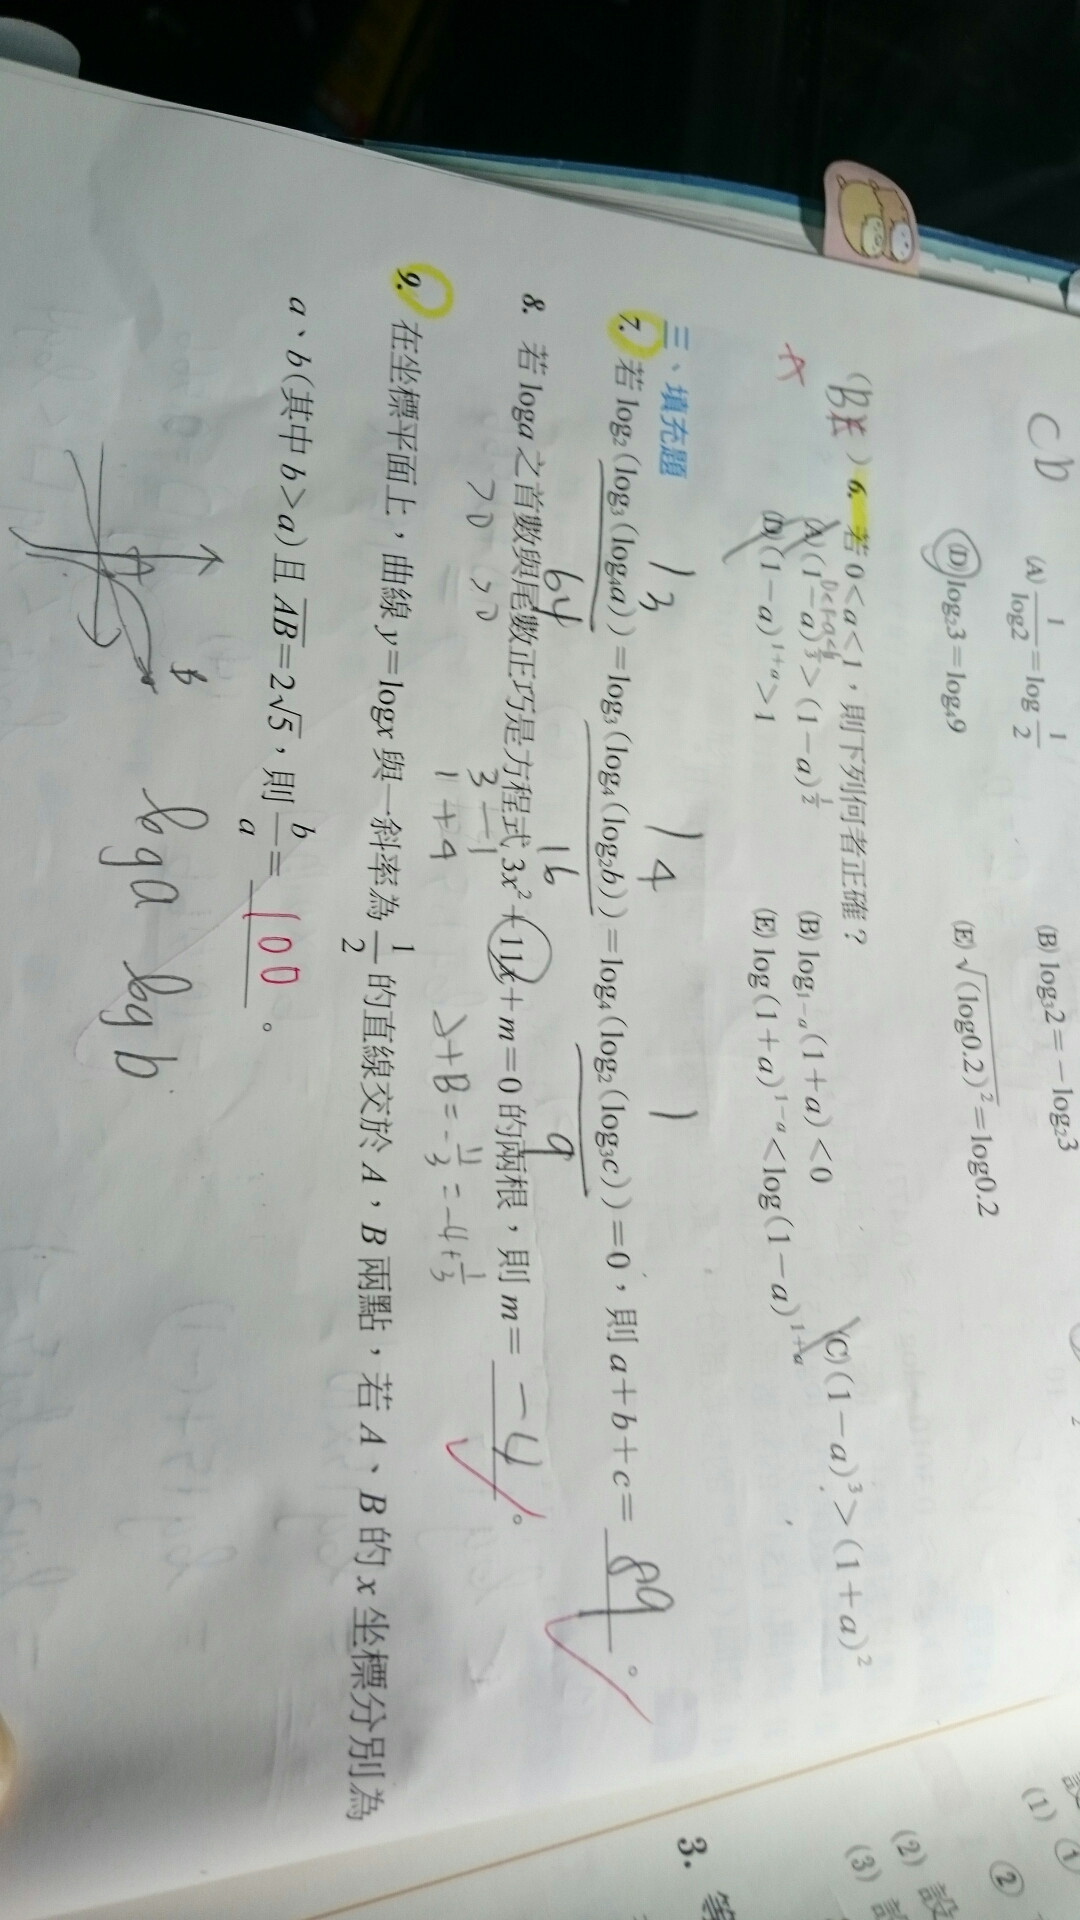 CD
(A) 1/log2 = log 1/2
(B) log₃2 = −log₂3
(D) log₂3 = log₄9
(E) √(log0.2)² = log0.2
(B ) 6. 若 0<a<1，則下列何者正確？
A
0<1-a<1
(A) (1−a)^(1/3) > (1−a)^(1/2)
(B) log₁₋ₐ(1+a) < 0
(C) (1−a)³ > (1+a)²
(D) (1−a)^(1+a) > 1
(E) log(1+a)^(1−a) < log(1−a)^(1+a)
三、填充題
1 3
1 4
1
7. 若 log₂(log₃(log₄a)) = log₃(log₄(log₂b)) = log₄(log₂(log₃c)) = 0，則 a+b+c = 89 。
64
16
9
8. 若 loga 之首數與尾數正巧是方程式 3x²+11x+m=0 的兩根，則 m= −4 。
>0 >0
3 −1
1 +4
+B = -11/3 = -4+1/3
9. 在坐標平面上，曲線 y=logx 與一斜率為 1/2 的直線交於 A，B 兩點，若 A、B 的 x 坐標分別為
a、b(其中 b>a)且 AB=2√5，則 b/a = 100 。
A
B
log a log b
3. 等
(1) ①
②
(2) 設
(3) 設